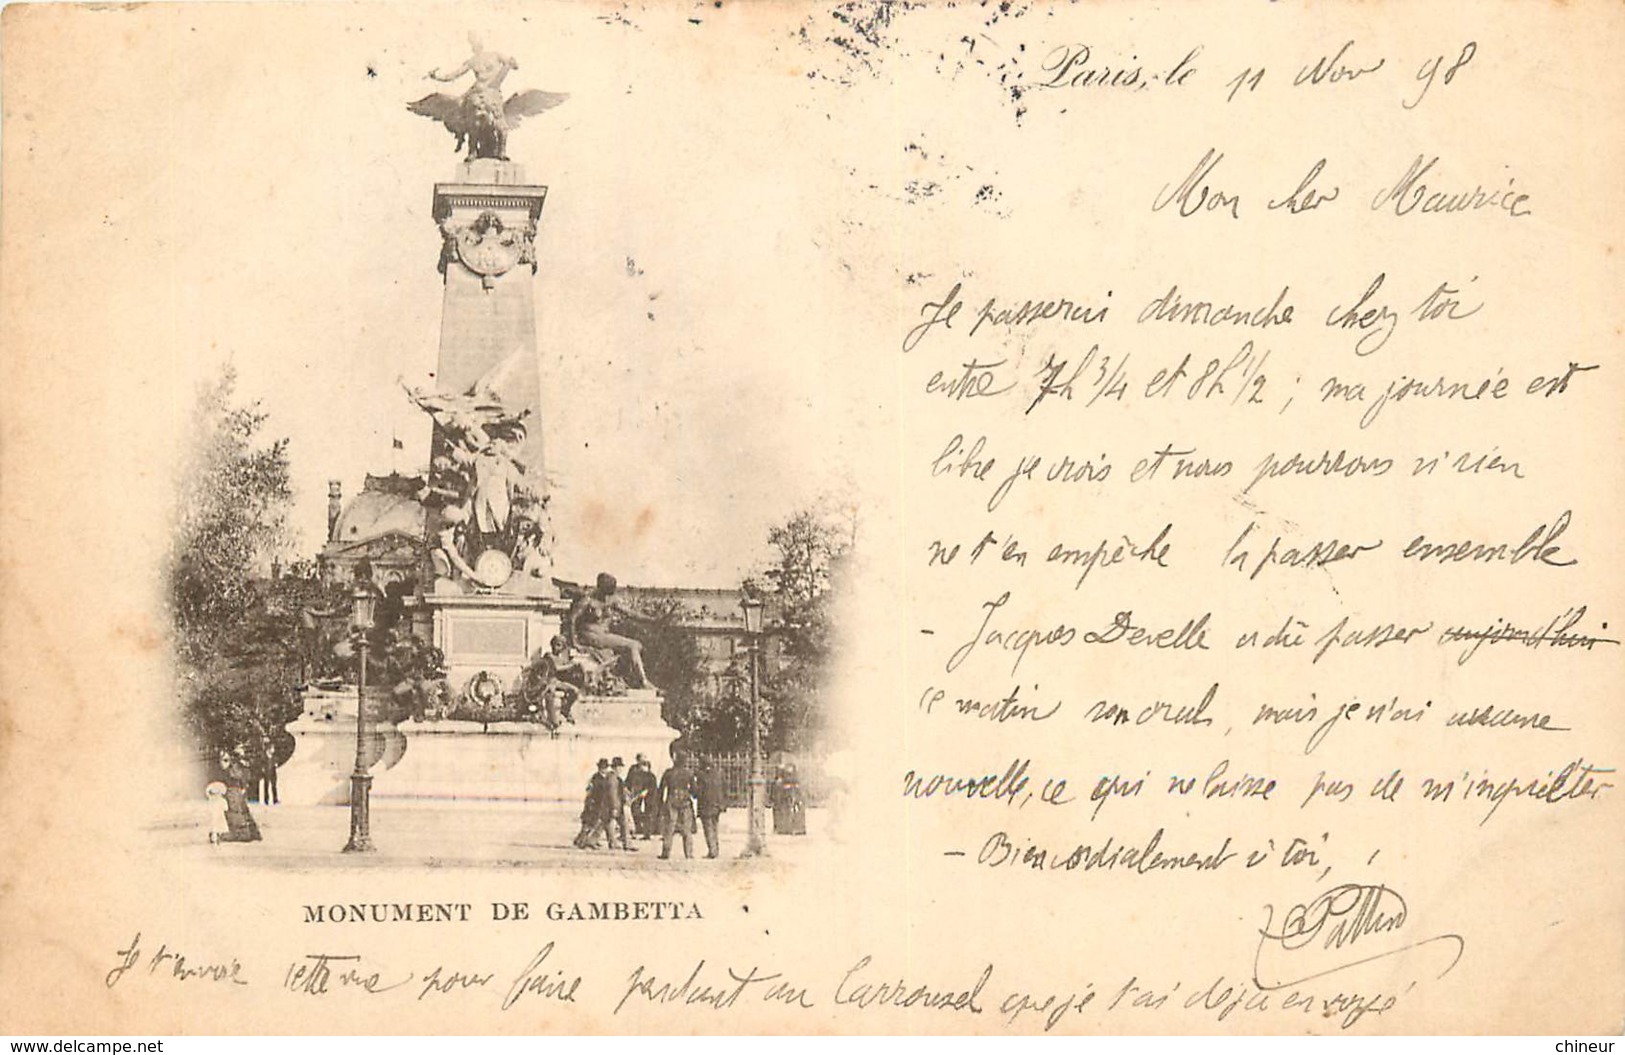 Paris, le 11 Nov 98
Mon cher Maurice
Je passerai dimanche chez toi
entre 7h 3/4 et 8h 1/2 ; ma journée est
libre je crois et nous pourrons si rien
ne t'en empêche la passer ensemble
- Jacques Develle a dû passer aujourd'hui
ce matin son oral, mais je n'ai aucune
nouvelle, ce qui ne laisse pas de m'inquiéter
- Bien cordialement à toi,
MONUMENT DE GAMBETTA
Je t'envoie cette vue pour faire pendant au Carrousel que je t'ai déjà envoyé
delcampe.net
chineur